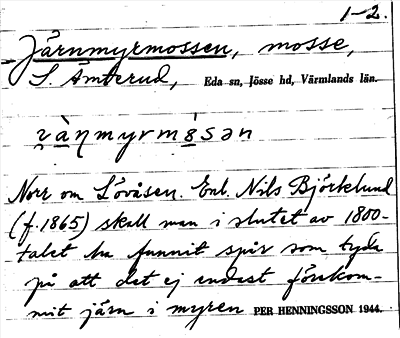 1-2.
Järnmyrmossen, mosse,
S. Ämterud, Eda sn, Jösse hd, Värmlands län.
Norr om Lövåsen. Enl. Nils Björklund
(f. 1865) skall man i slutet av 1800-
talet ha funnit spår som tyda
på att det ej endast förekom-
mit järn i myren PER HENNINGSSON 1944.